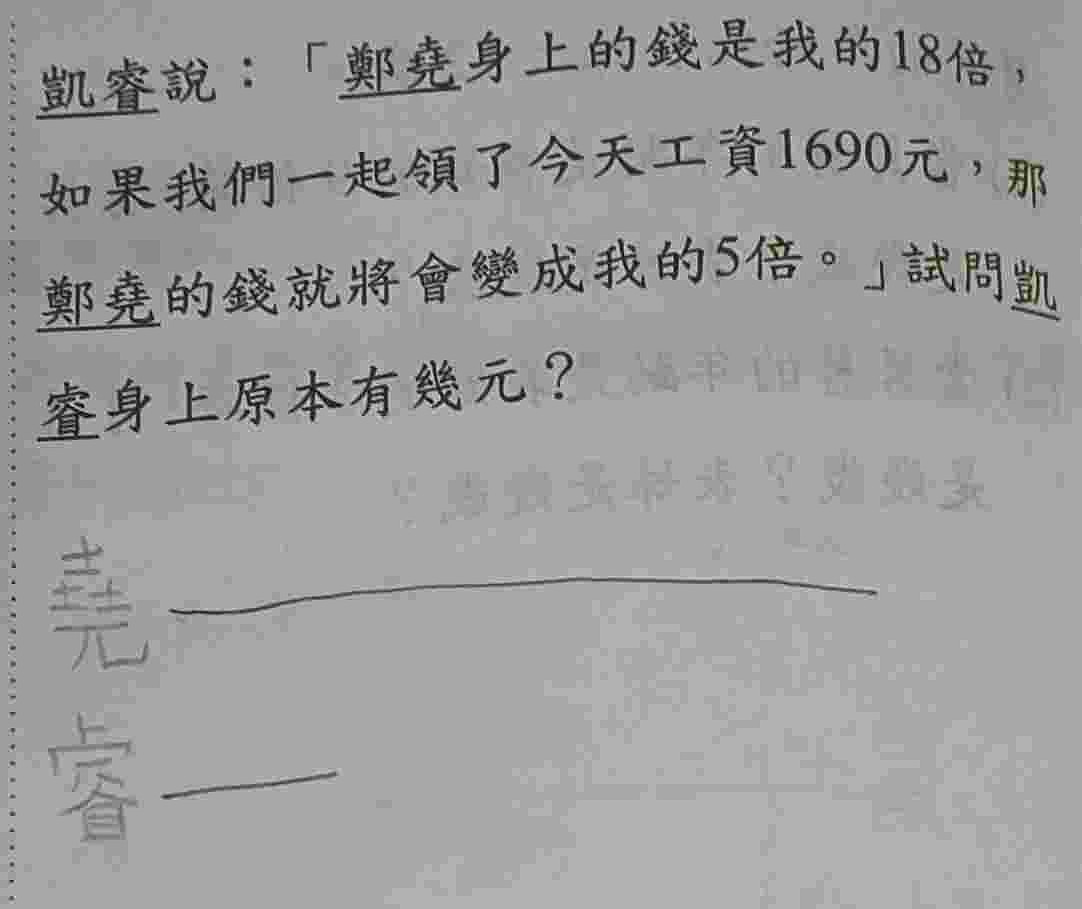 凱睿說：「鄭堯身上的錢是我的18倍，
如果我們一起領了今天工資1690元，那
鄭堯的錢就將會變成我的5倍。」試問凱
睿身上原本有幾元？
堯
睿